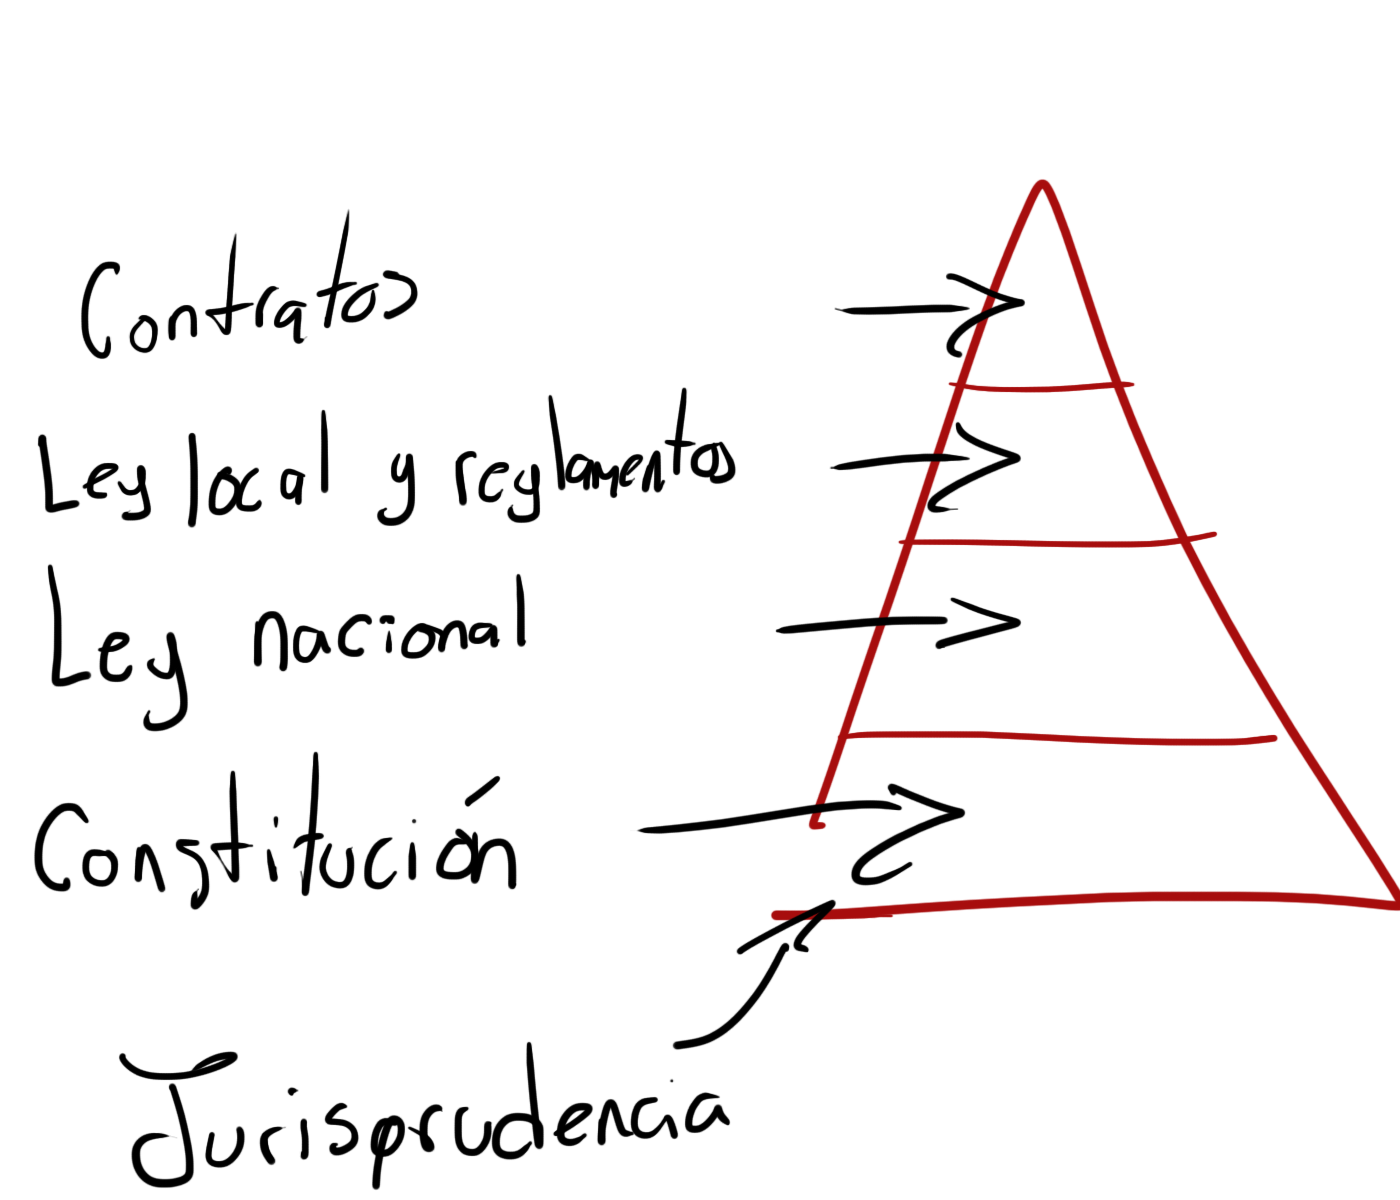 Contratos
Ley local y reglamentos
Ley nacional
Constitución
Jurisprudencia